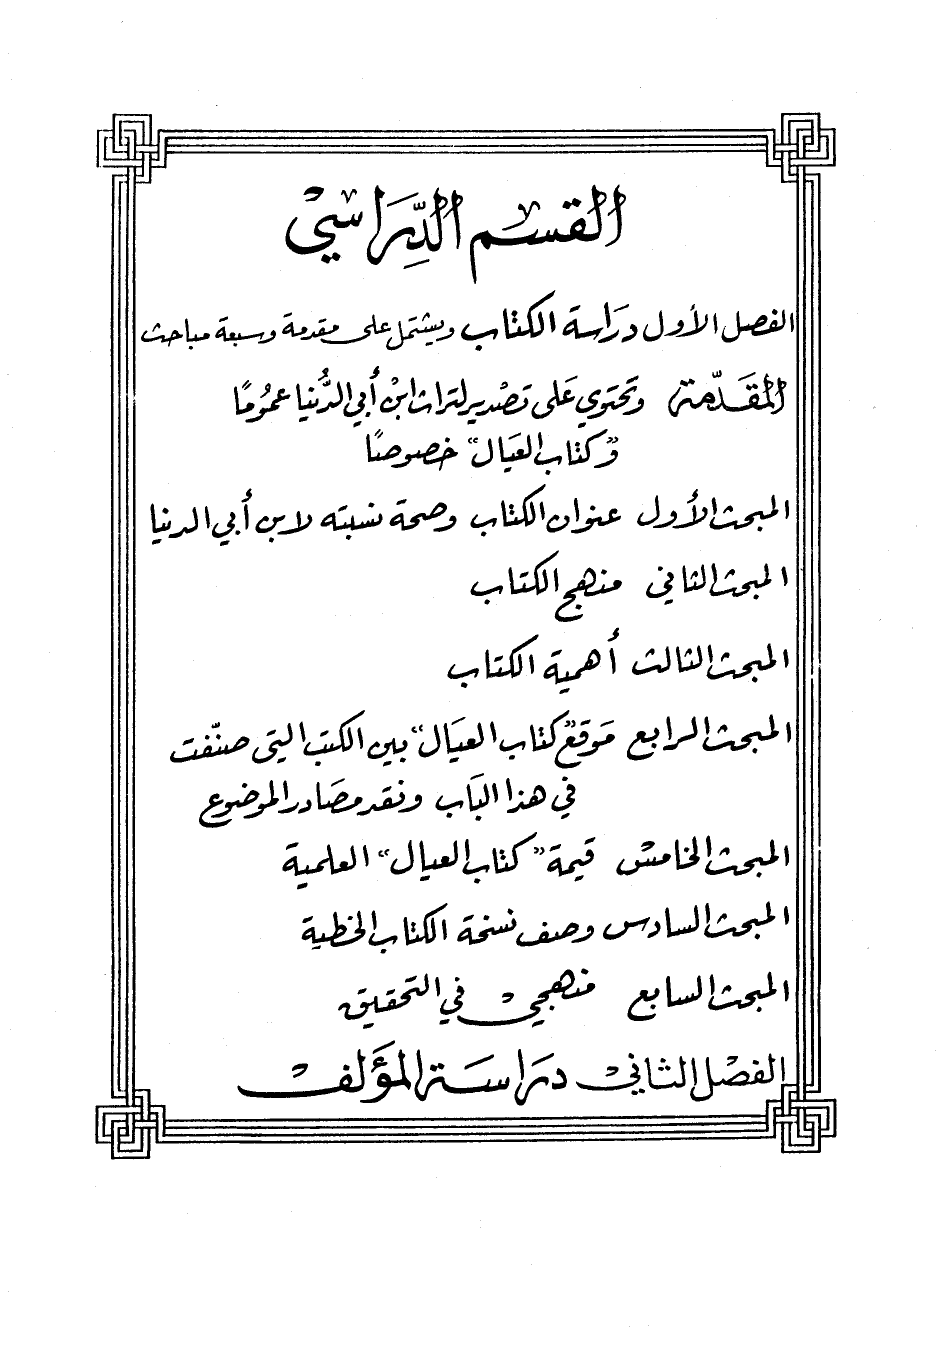 القسم الدِّرَاسِي
الفصل الأول دِرَاسة الكتاب ويشتمل على مقدمة وسبعة مباحث
المقَدّمة وتَحتوي عَلى تصْدير لتراث ابنْ أبي الدُّنيا عمُومًا
و"كتاب العيَال" خصوصًا
المبحث الأَول عنوان الكتاب وصحة نسبته لابن أبي الدنيا
المبحث الثاني منهج الكتاب
المبحث الثالث أهمية الكتاب
المبحث الرابع مَوقع "كتاب العيَال" بين الكتب التي صنّفت
في هذا البَاب ونقد مصَادر الموضوع
المبحث الخامس قيمة "كتاب العيال" العلمية
المبحث السادس وصف نسخة الكتاب الخطية
المبحث السابع منهجي في التحقيق
الفصْل الثاني دِرَاسَة المؤَلف